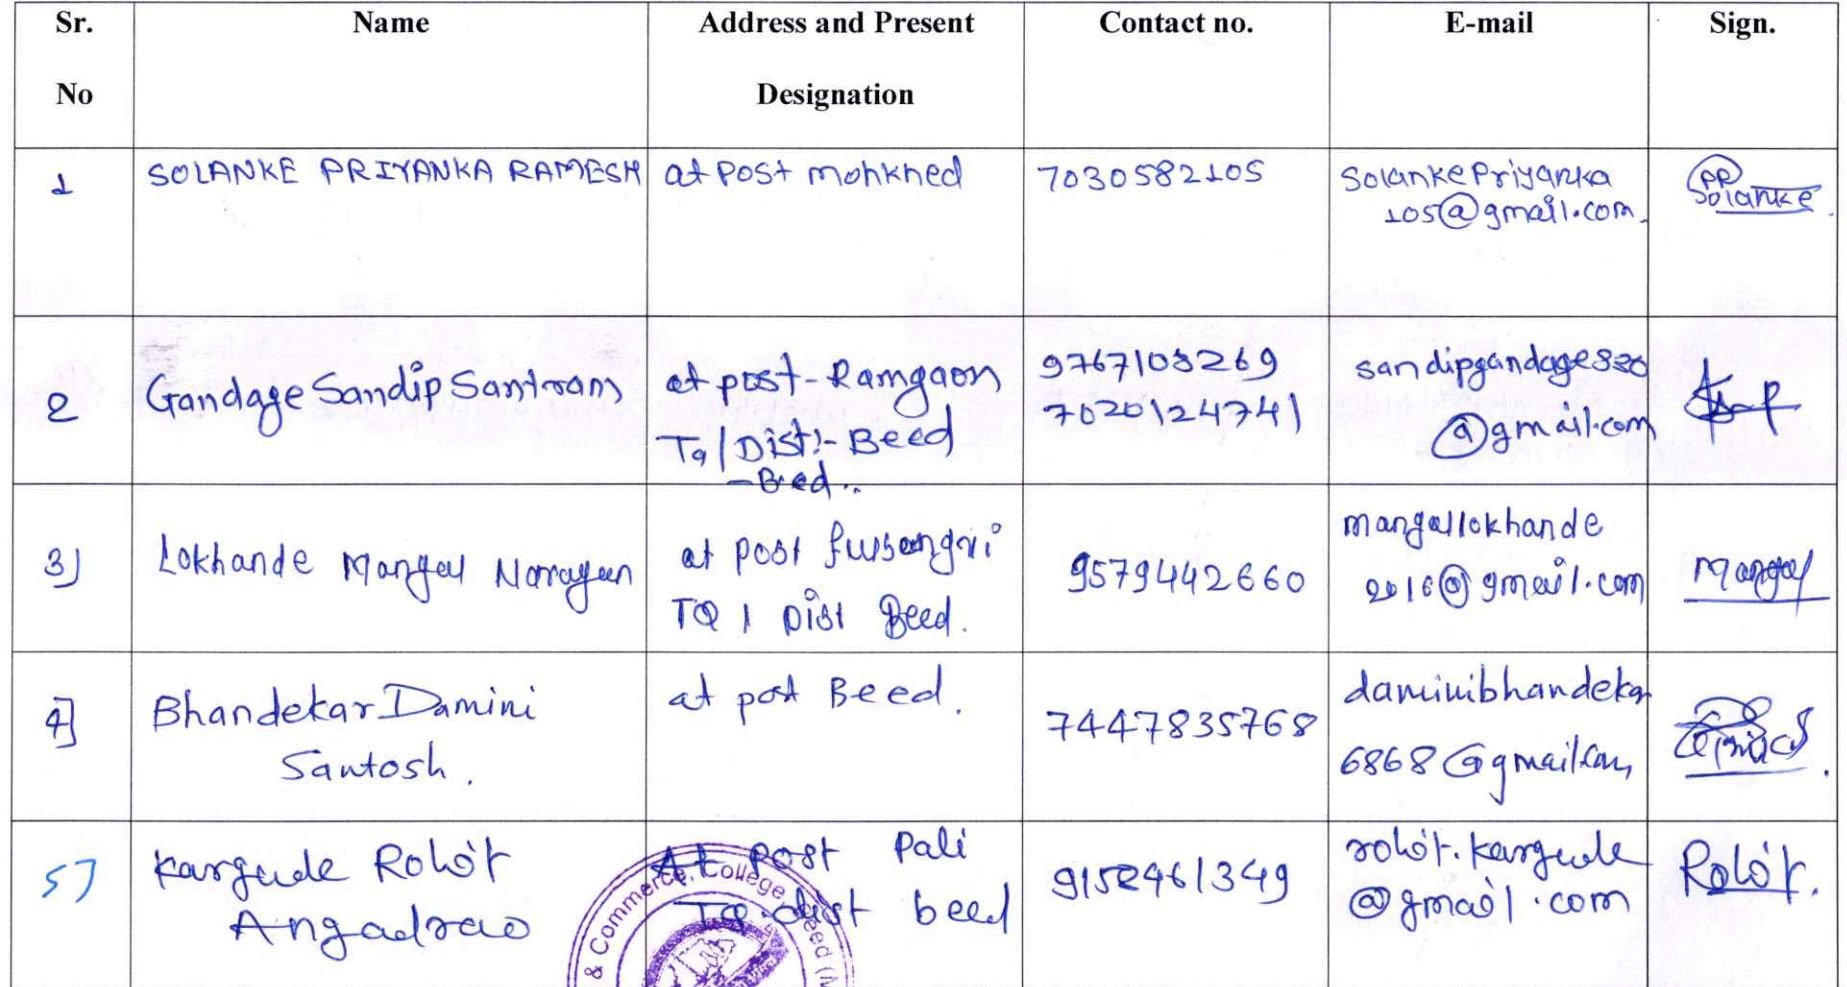 Sr. No
Name
Address and Present Designation
Contact no.
E-mail
Sign.
1
SOLANKE PRIYANKA RAMESH
at Post mohkhed
7030582105
SolankePriyanka
105@gmail.com
PR
Solanke
2
Gandage Sandip Santram
at post-Ramgaon
Tq/Dist:-Beed
-Beed..
9767103269
7020124741
sandipgandage520
@gmail.com
3)
Lokhande Mangal Narayan
at post
TQ / Dist Beed.
9579442660
mangallokhande
2016@gmail.com
Mangal
4]
Bhandekar Damini
Santosh.
at post Beed.
7447835768
daminibhandekar
6868@gmail.com
5)
Kargude Rohit
Angadrao
At Post Pali
TQ.dist beed
9152961349
rohit.kargude
@gmail.com
Rohit.
& Commerce, College Beed (M